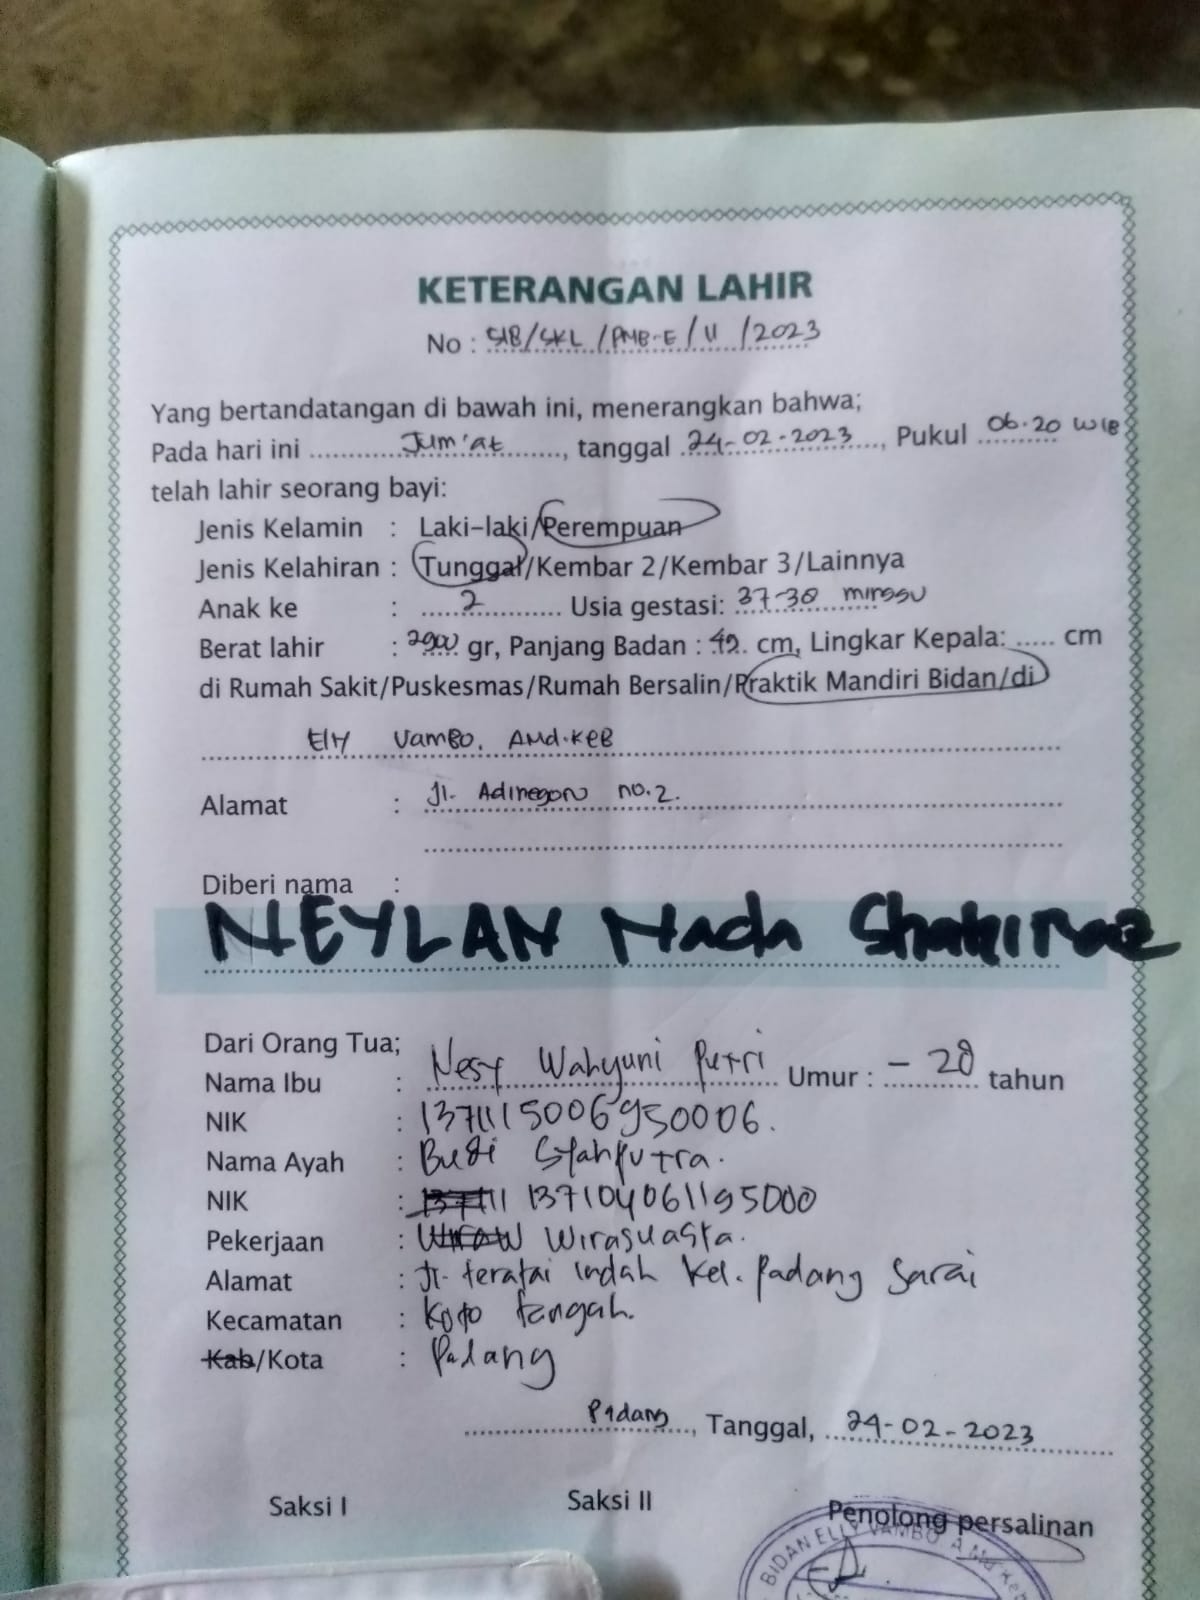 KETERANGAN LAHIR
No : 518/SKL /PMB-E / II /2023
Yang bertandatangan di bawah ini, menerangkan bahwa;
Pada hari ini Jum'at, tanggal 24-02-2023, Pukul 06.20 WIB
telah lahir seorang bayi:
Jenis Kelamin : Laki-laki/Perempuan
Jenis Kelahiran : Tunggal/Kembar 2/Kembar 3/Lainnya
Anak ke : 2 Usia gestasi: 37-38 minggu
Berat lahir : 2900 gr, Panjang Badan : 49 cm, Lingkar Kepala: ..... cm
di Rumah Sakit/Puskesmas/Rumah Bersalin/Praktik Mandiri Bidan/di
Elly Vambo, AMd.Keb
Alamat : Jl. Adinegoro no.2.
Diberi nama :
NEYLAN Nada
Dari Orang Tua;
Nama Ibu : Nesy Wahyuni Putri Umur : - 28 tahun
NIK : 1371115006950006.
Nama Ayah : Budi Syahputra.
NIK : 137104061195000
Pekerjaan : Wirasuasta.
Alamat : Jl. teratai indah kel. Padang Sarai
Kecamatan : Koto tangah.
Kab/Kota : Padang
Padang, Tanggal, 24-02-2023
Saksi I Saksi II Penolong persalinan
BIDAN ELLY VAMBO A.Md Keb